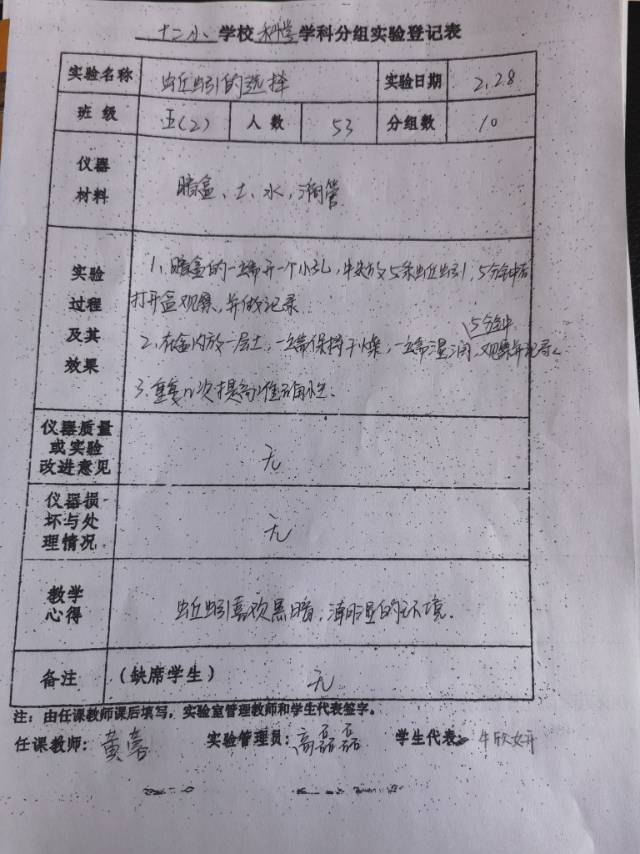 十二小 学校 科学 学科分组实验登记表
实验名称 蚯蚓的选择 实验日期 2.28
班级 五(2) 人数 53 分组数 10
仪器材料 暗盒、土、水、滴管
实验过程及其效果
1、暗盒的一端开一个小孔，中央放5条蚯蚓，5分钟后
打开盒观察，并做记录
2、在盒内放一层土，一端保持干燥，一端湿润，5分钟观察并记录。
3、重复n次提高准确性。
仪器质量或实验改进意见 无
仪器损坏与处理情况 无
教学心得 蚯蚓喜欢黑暗，潮湿的环境.
备注 (缺席学生) 无
注：由任课教师课后填写，实验室管理教师和学生代表签字。
任课教师： 黄 实验管理员：高磊磊 学生代表： 牛欣妍